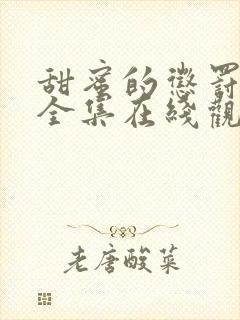 甜蜜的懲罰
全集在綫觀
老唐酸菜